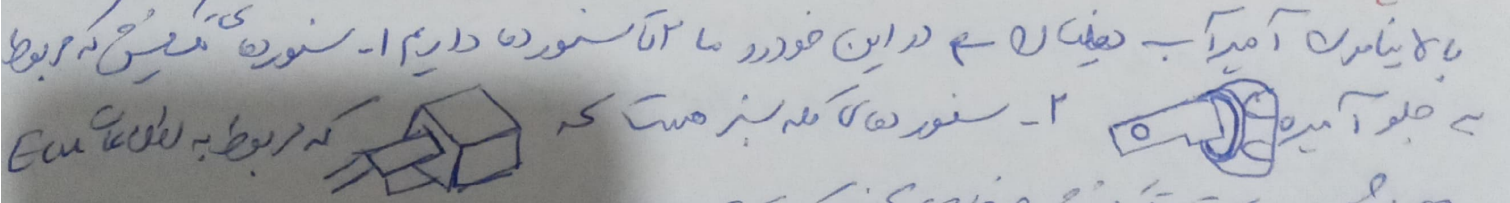 بالا نیامدن آمپر آب در این خودرو ما ۲ تا سنسور دما داریم ۱- سنسور دمای فیش که مربوط
به جلو آمپره ۲- سنسور دمای کله سبز هست که که مربوط به اطلاعات Ecu